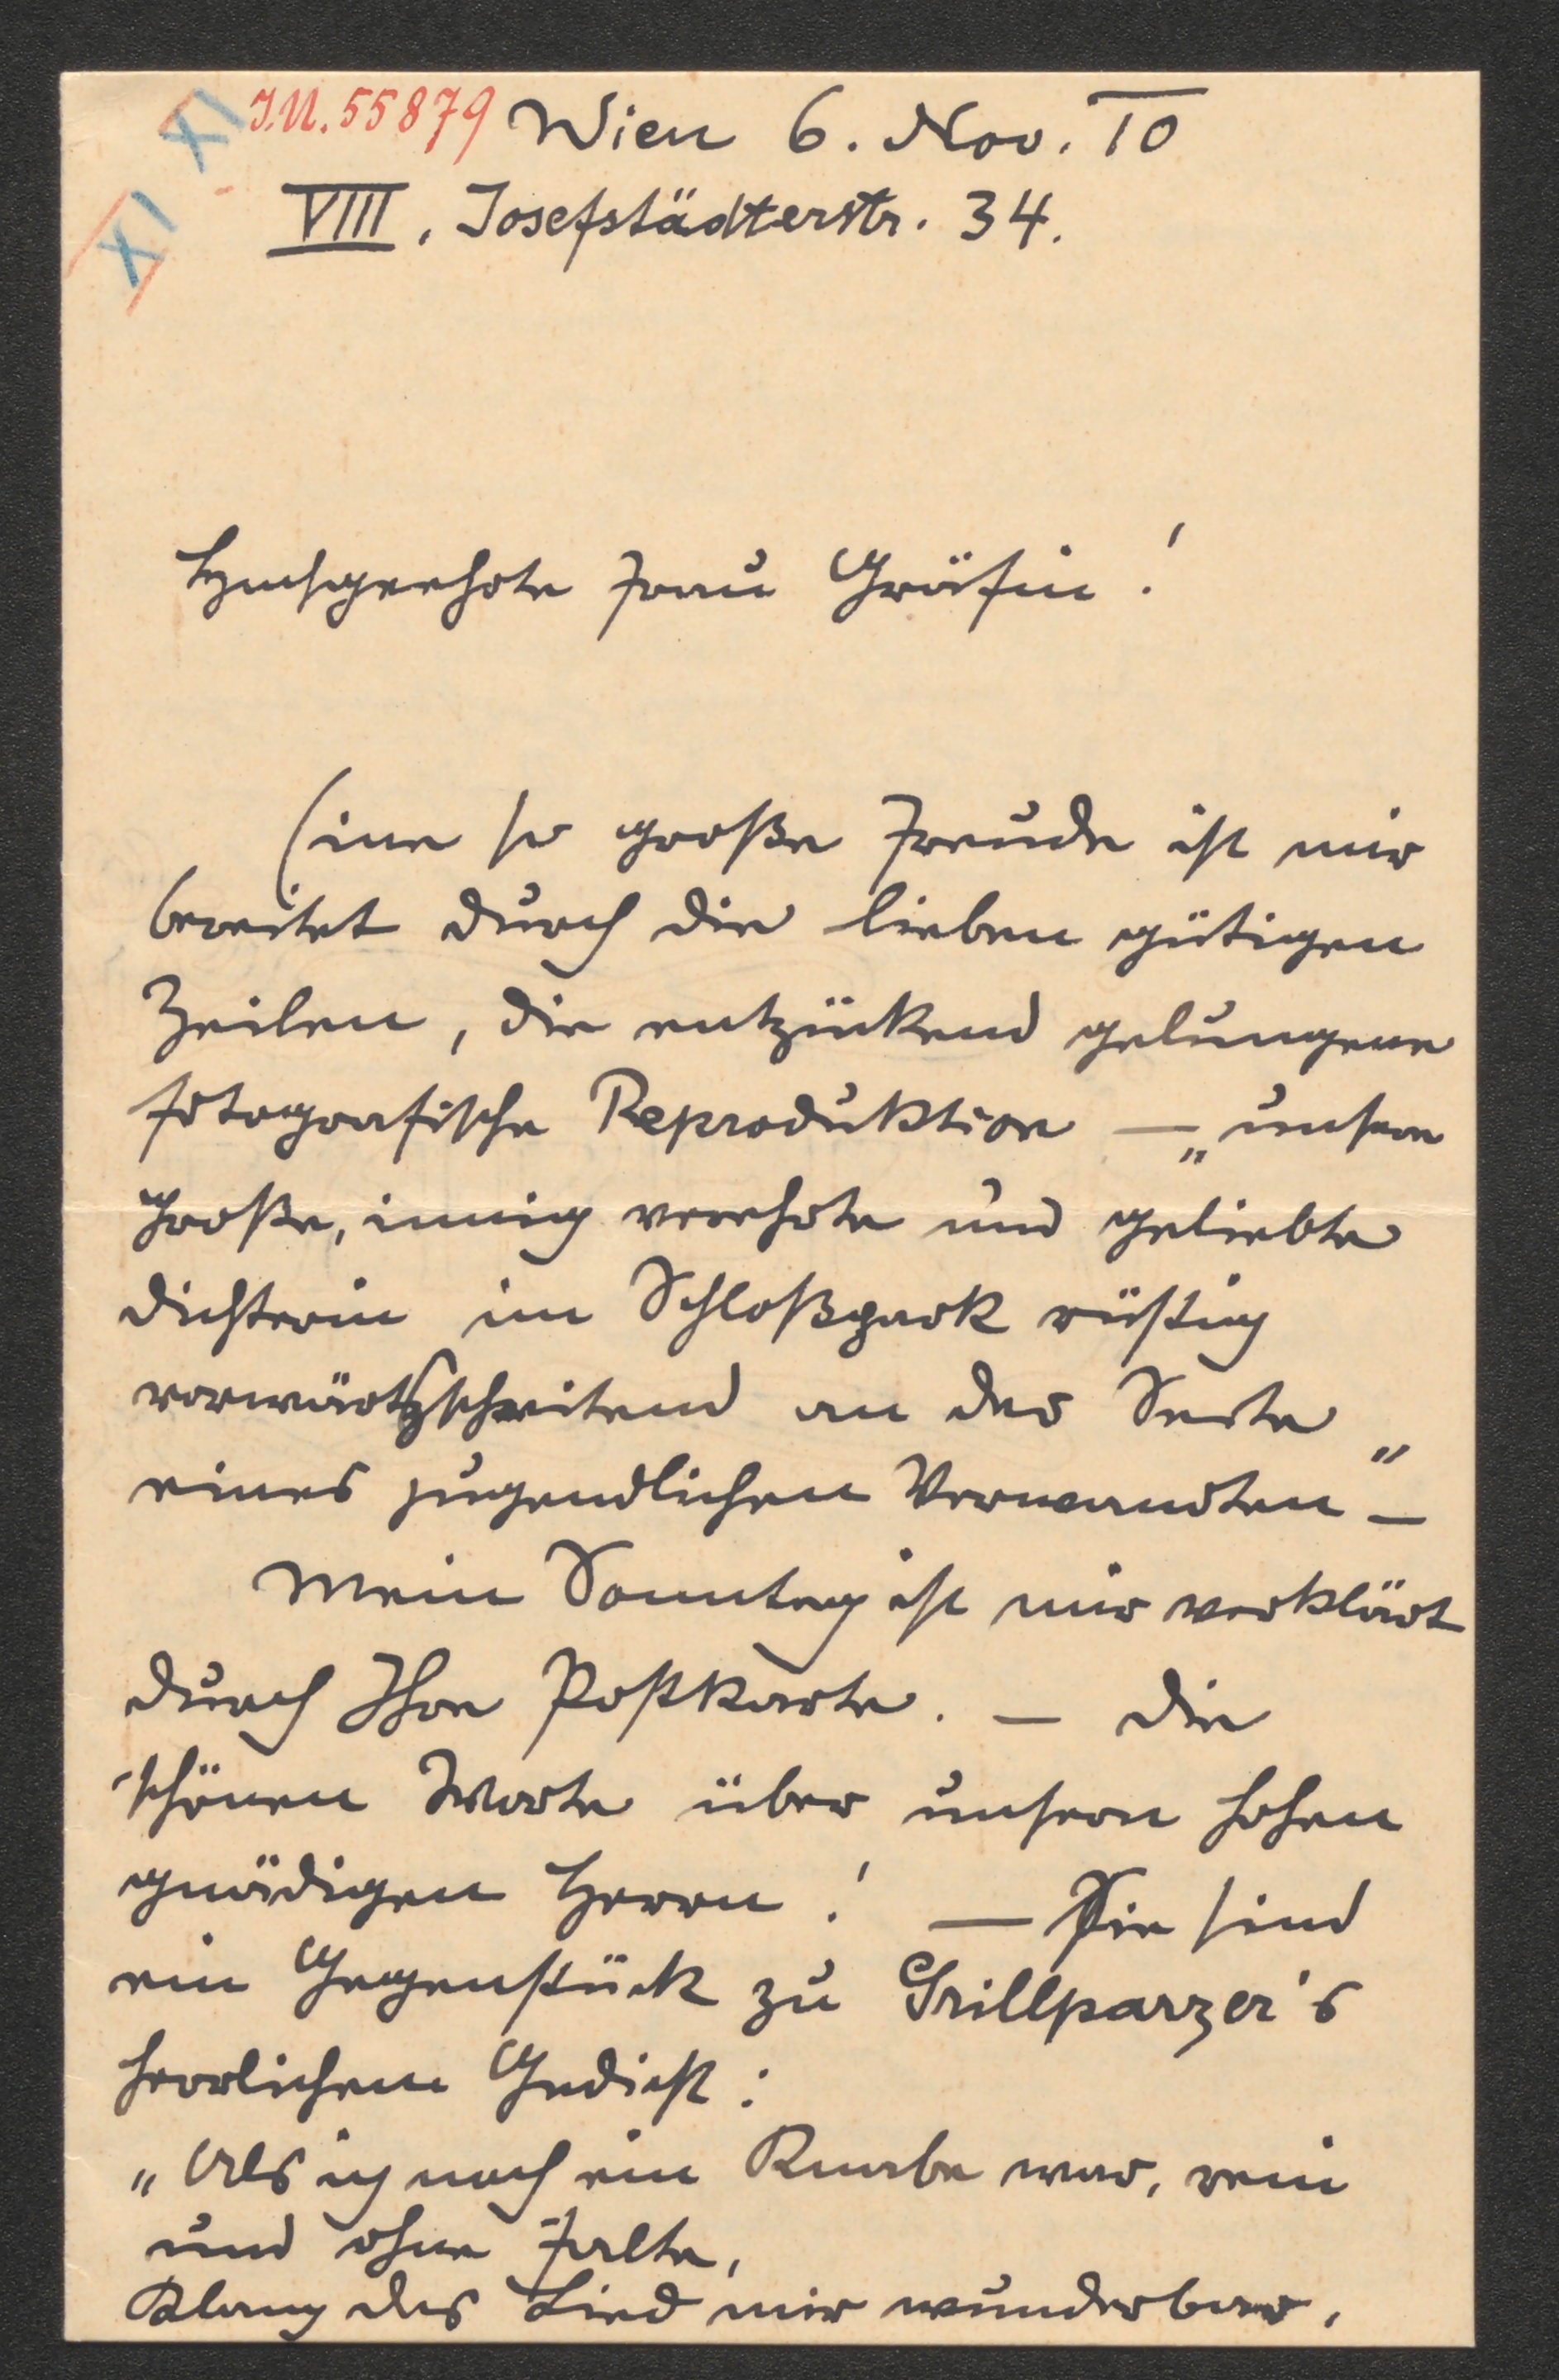 XI XI
J.N. 55879 Wien 6. Nov. 10
VIII, Josefstädterstr. 34.
Hochgeehrte Frau Gräfin!
Eine so große Freude ist mir
bereitet durch die lieben gütigen
Zeilen, die entzückend gelungene
fotografische Reproduktion — „unsere
große, innig verehrte und geliebte
Dichterin im Schloßpark rüstig
vorwärtsschreitend an der Seite
eines jugendlichen Verwandten" —
Mein Sonntag ist mir verklärt
durch Ihre Postkarte. — Die
schönen Worte über unsern hohen
gnädigen Herrn! — Sie sind
ein Gegenstück zu Grillparzer's
herrlichem Gedicht:
„Als ich noch ein Knabe war, rein
und ohne Falte,
Klang das Lied mir wunderbar,